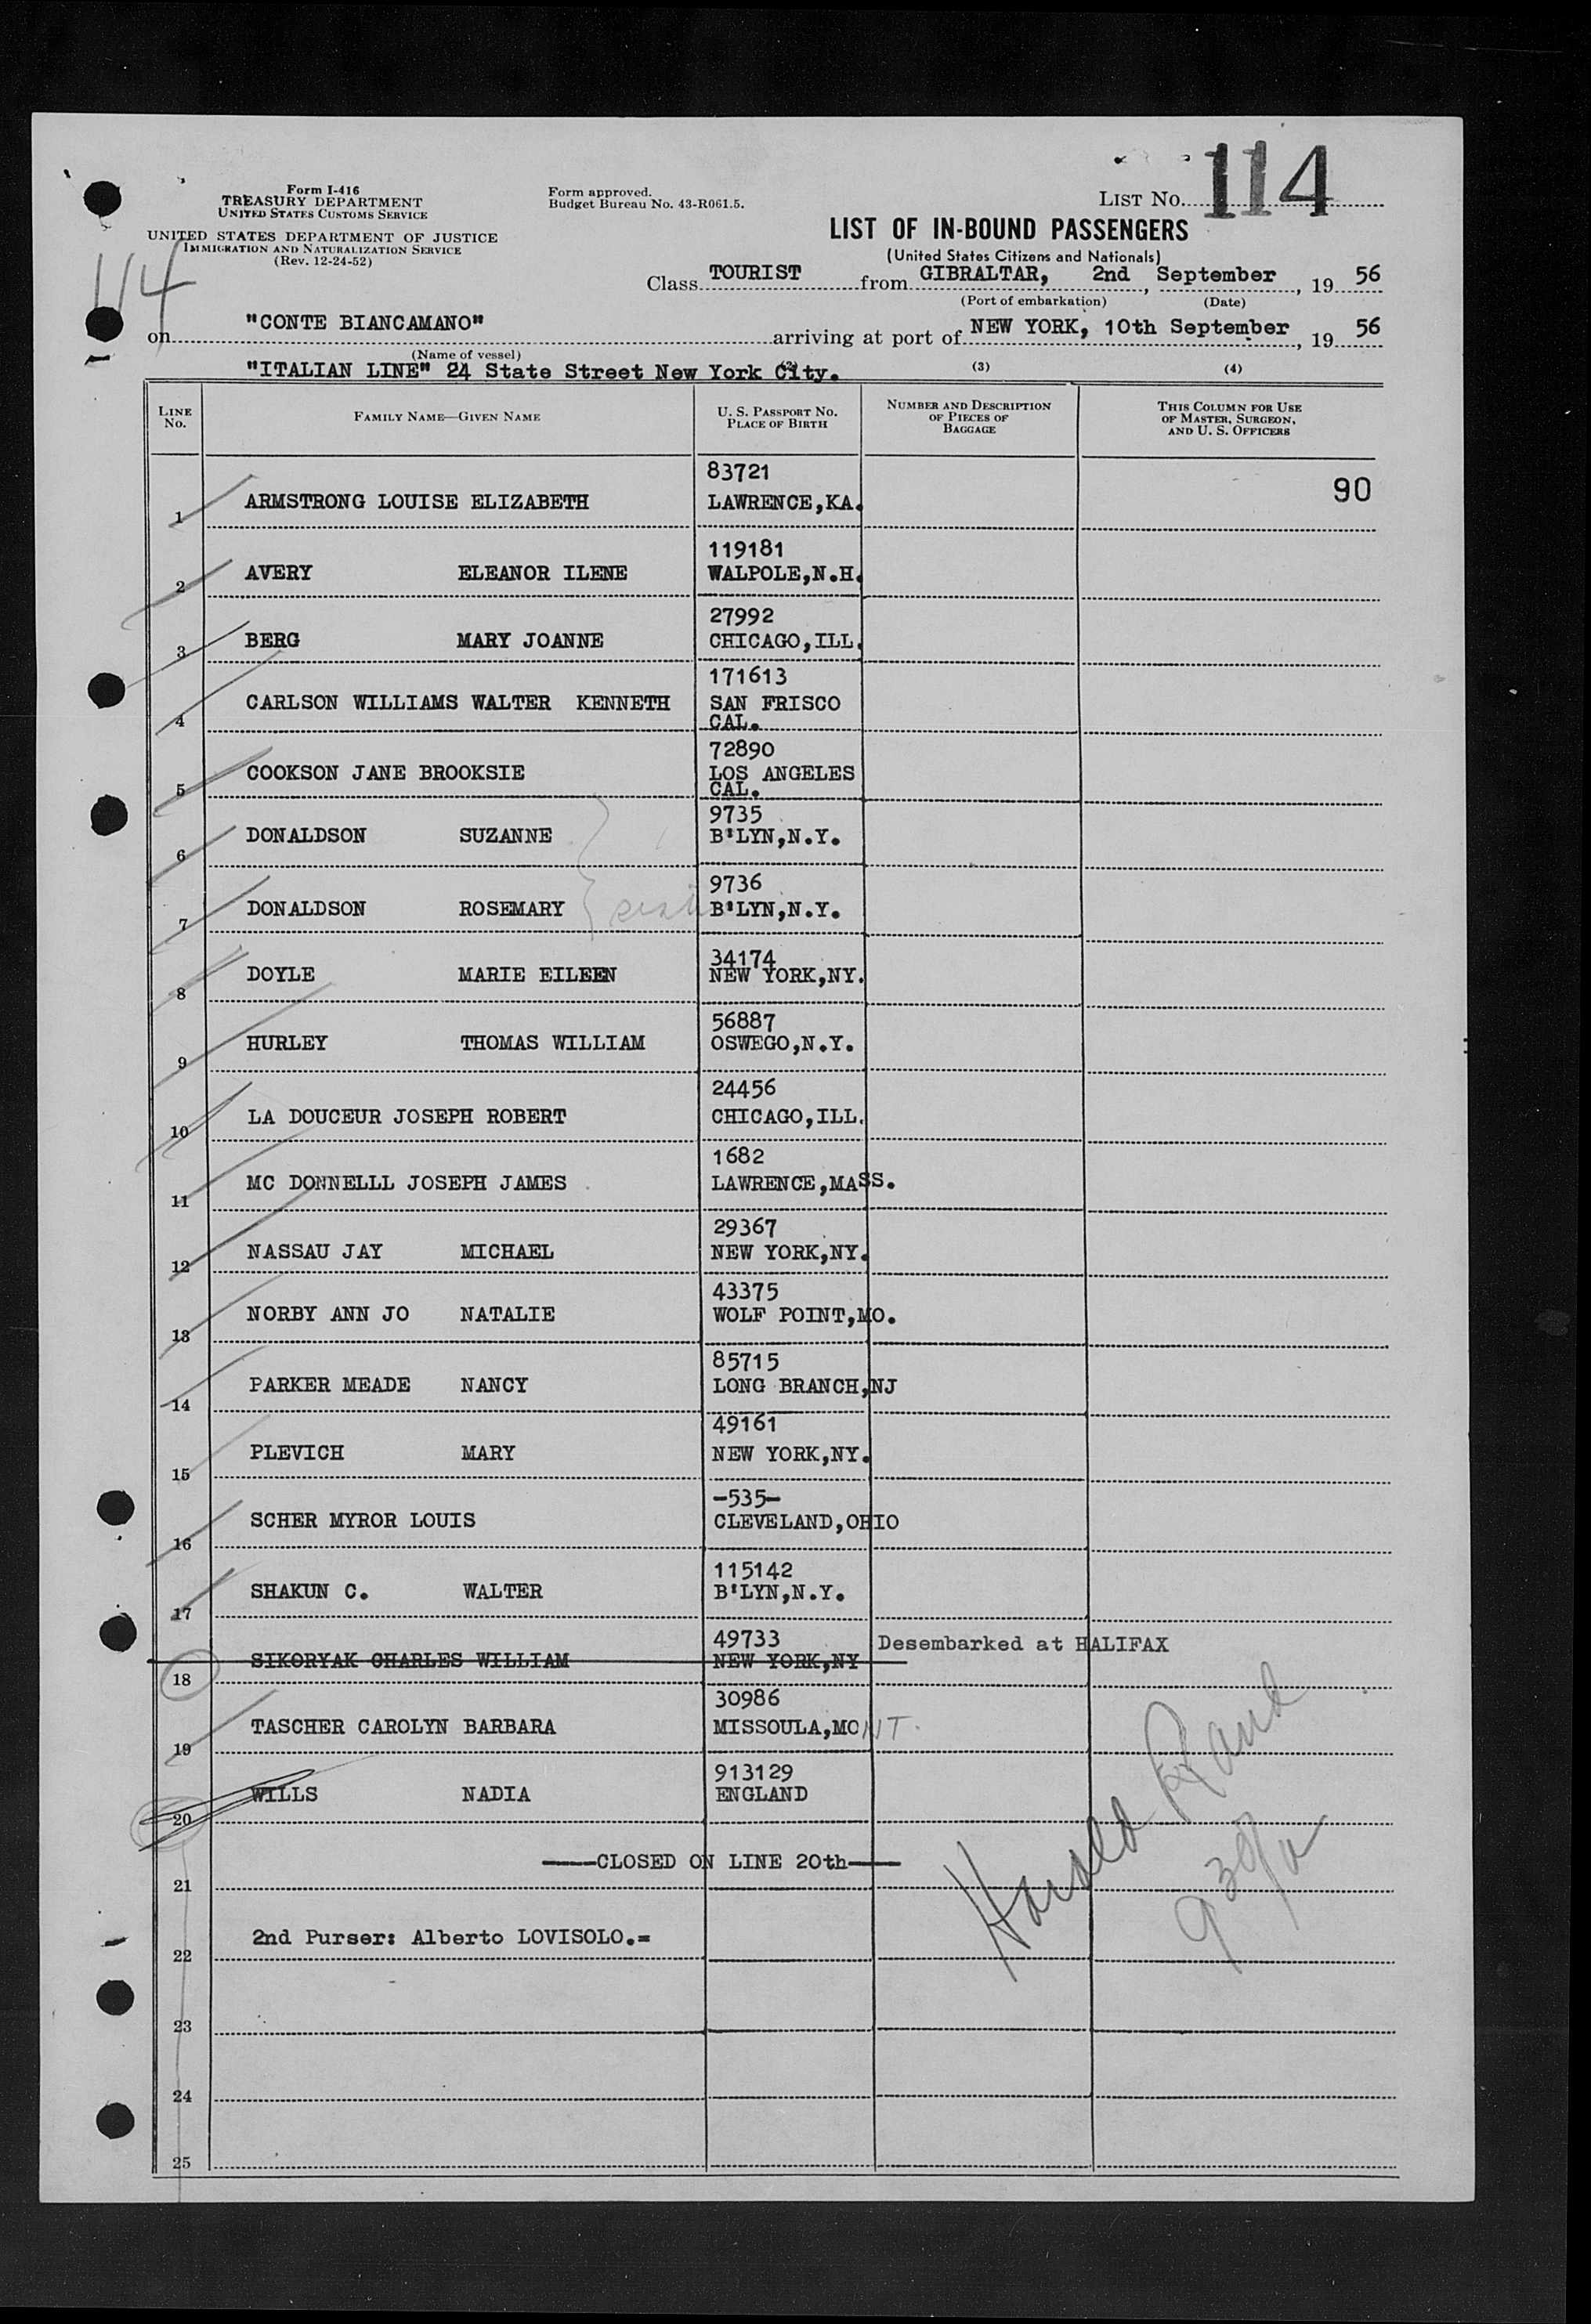 114
Form I-416
TREASURY DEPARTMENT
UNITED STATES CUSTOMS SERVICE
Form approved.
Budget Bureau No. 43-R061.5.
LIST NO. 114
UNITED STATES DEPARTMENT OF JUSTICE
IMMIGRATION AND NATURALIZATION SERVICE
(Rev. 12-24-52)
LIST OF IN-BOUND PASSENGERS
(United States Citizens and Nationals)
Class TOURIST from GIBRALTAR, 2nd September, 19 56
(Port of embarkation) (Date)
on "CONTE BIANCAMANO" arriving at port of NEW YORK, 10th September, 19 56
(Name of vessel)
"ITALIAN LINE" 24 State Street New York City. (3) (4)
LINE No. FAMILY NAME—GIVEN NAME U. S. PASSPORT NO. PLACE OF BIRTH NUMBER AND DESCRIPTION OF PIECES OF BAGGAGE THIS COLUMN FOR USE OF MASTER, SURGEON, AND U. S. OFFICERS
83721 90
1 ARMSTRONG LOUISE ELIZABETH LAWRENCE,KA.
119181
2 AVERY ELEANOR ILENE WALPOLE,N.H.
27992
3 BERG MARY JOANNE CHICAGO,ILL.
171613
4 CARLSON WILLIAMS WALTER KENNETH SAN FRISCO
CAL.
72890
5 COOKSON JANE BROOKSIE LOS ANGELES
CAL.
9735
6 DONALDSON SUZANNE B'LYN,N.Y.
9736
7 DONALDSON ROSEMARY B'LYN,N.Y.
34174
8 DOYLE MARIE EILEEN NEW YORK,NY.
56887
9 HURLEY THOMAS WILLIAM OSWEGO,N.Y.
24456
10 LA DOUCEUR JOSEPH ROBERT CHICAGO,ILL.
1682
11 MC DONNELLL JOSEPH JAMES LAWRENCE,MASS.
29367
12 NASSAU JAY MICHAEL NEW YORK,NY.
43375
13 NORBY ANN JO NATALIE WOLF POINT,MO.
85715
14 PARKER MEADE NANCY LONG BRANCH,NJ
49161
15 PLEVICH MARY NEW YORK,NY.
-535-
16 SCHER MYROR LOUIS CLEVELAND,OHIO
115142
17 SHAKUN C. WALTER B'LYN,N.Y.
49733 Desembarked at HALIFAX
18 SIKORYAK CHARLES WILLIAM NEW YORK,NY
30986
19 TASCHER CAROLYN BARBARA MISSOULA,MONT.
913129
20 WILLS NADIA ENGLAND
21 ----CLOSED ON LINE 20th----
Harold Rand
22 2nd Purser: Alberto LOVISOLO.=
23
24
25